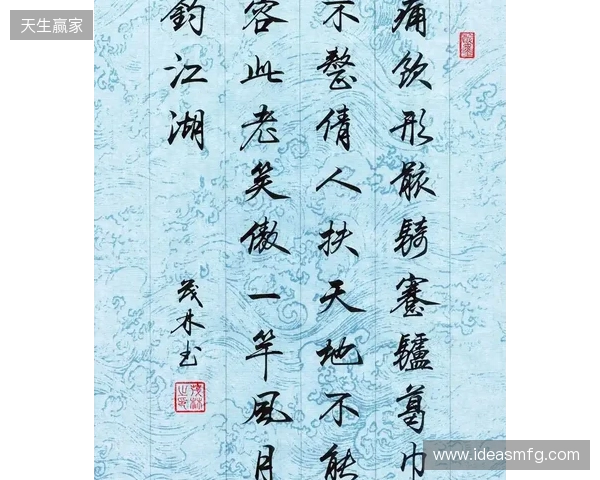 天生赢家
痛飲形骸騎蹇驢葛巾
不整倩人扶天地不能
容此老笑傲一竿風月
釣江湖
茂林书
www.ideasmfg.com